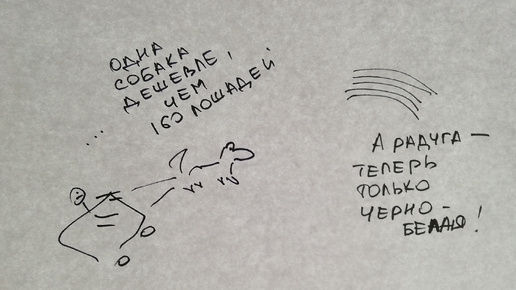 ОДНА
СОБАКА
ДЕШЕВЛЕ,
ЧЕМ
160 ЛОШАДЕЙ
...
А РАДУГА —
ТЕПЕРЬ
ТОЛЬКО
ЧЕРНО-
БЕЛАЯ!